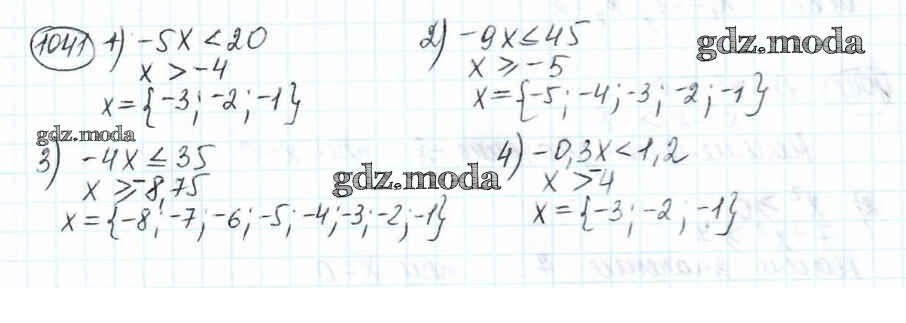 1041 1) -5x < 20
x > -4
x = {-3; -2; -1}
2) -9x ≤ 45
x ⩾ -5
x = {-5; -4; -3; -2; -1}
gdz.moda
gdz.moda
3) -4x ≤ 35
x ⩾ -8,75
x = {-8; -7; -6; -5; -4; -3; -2; -1}
gdz.moda
4) -0,3x < 1,2
x > -4
x = {-3; -2; -1}